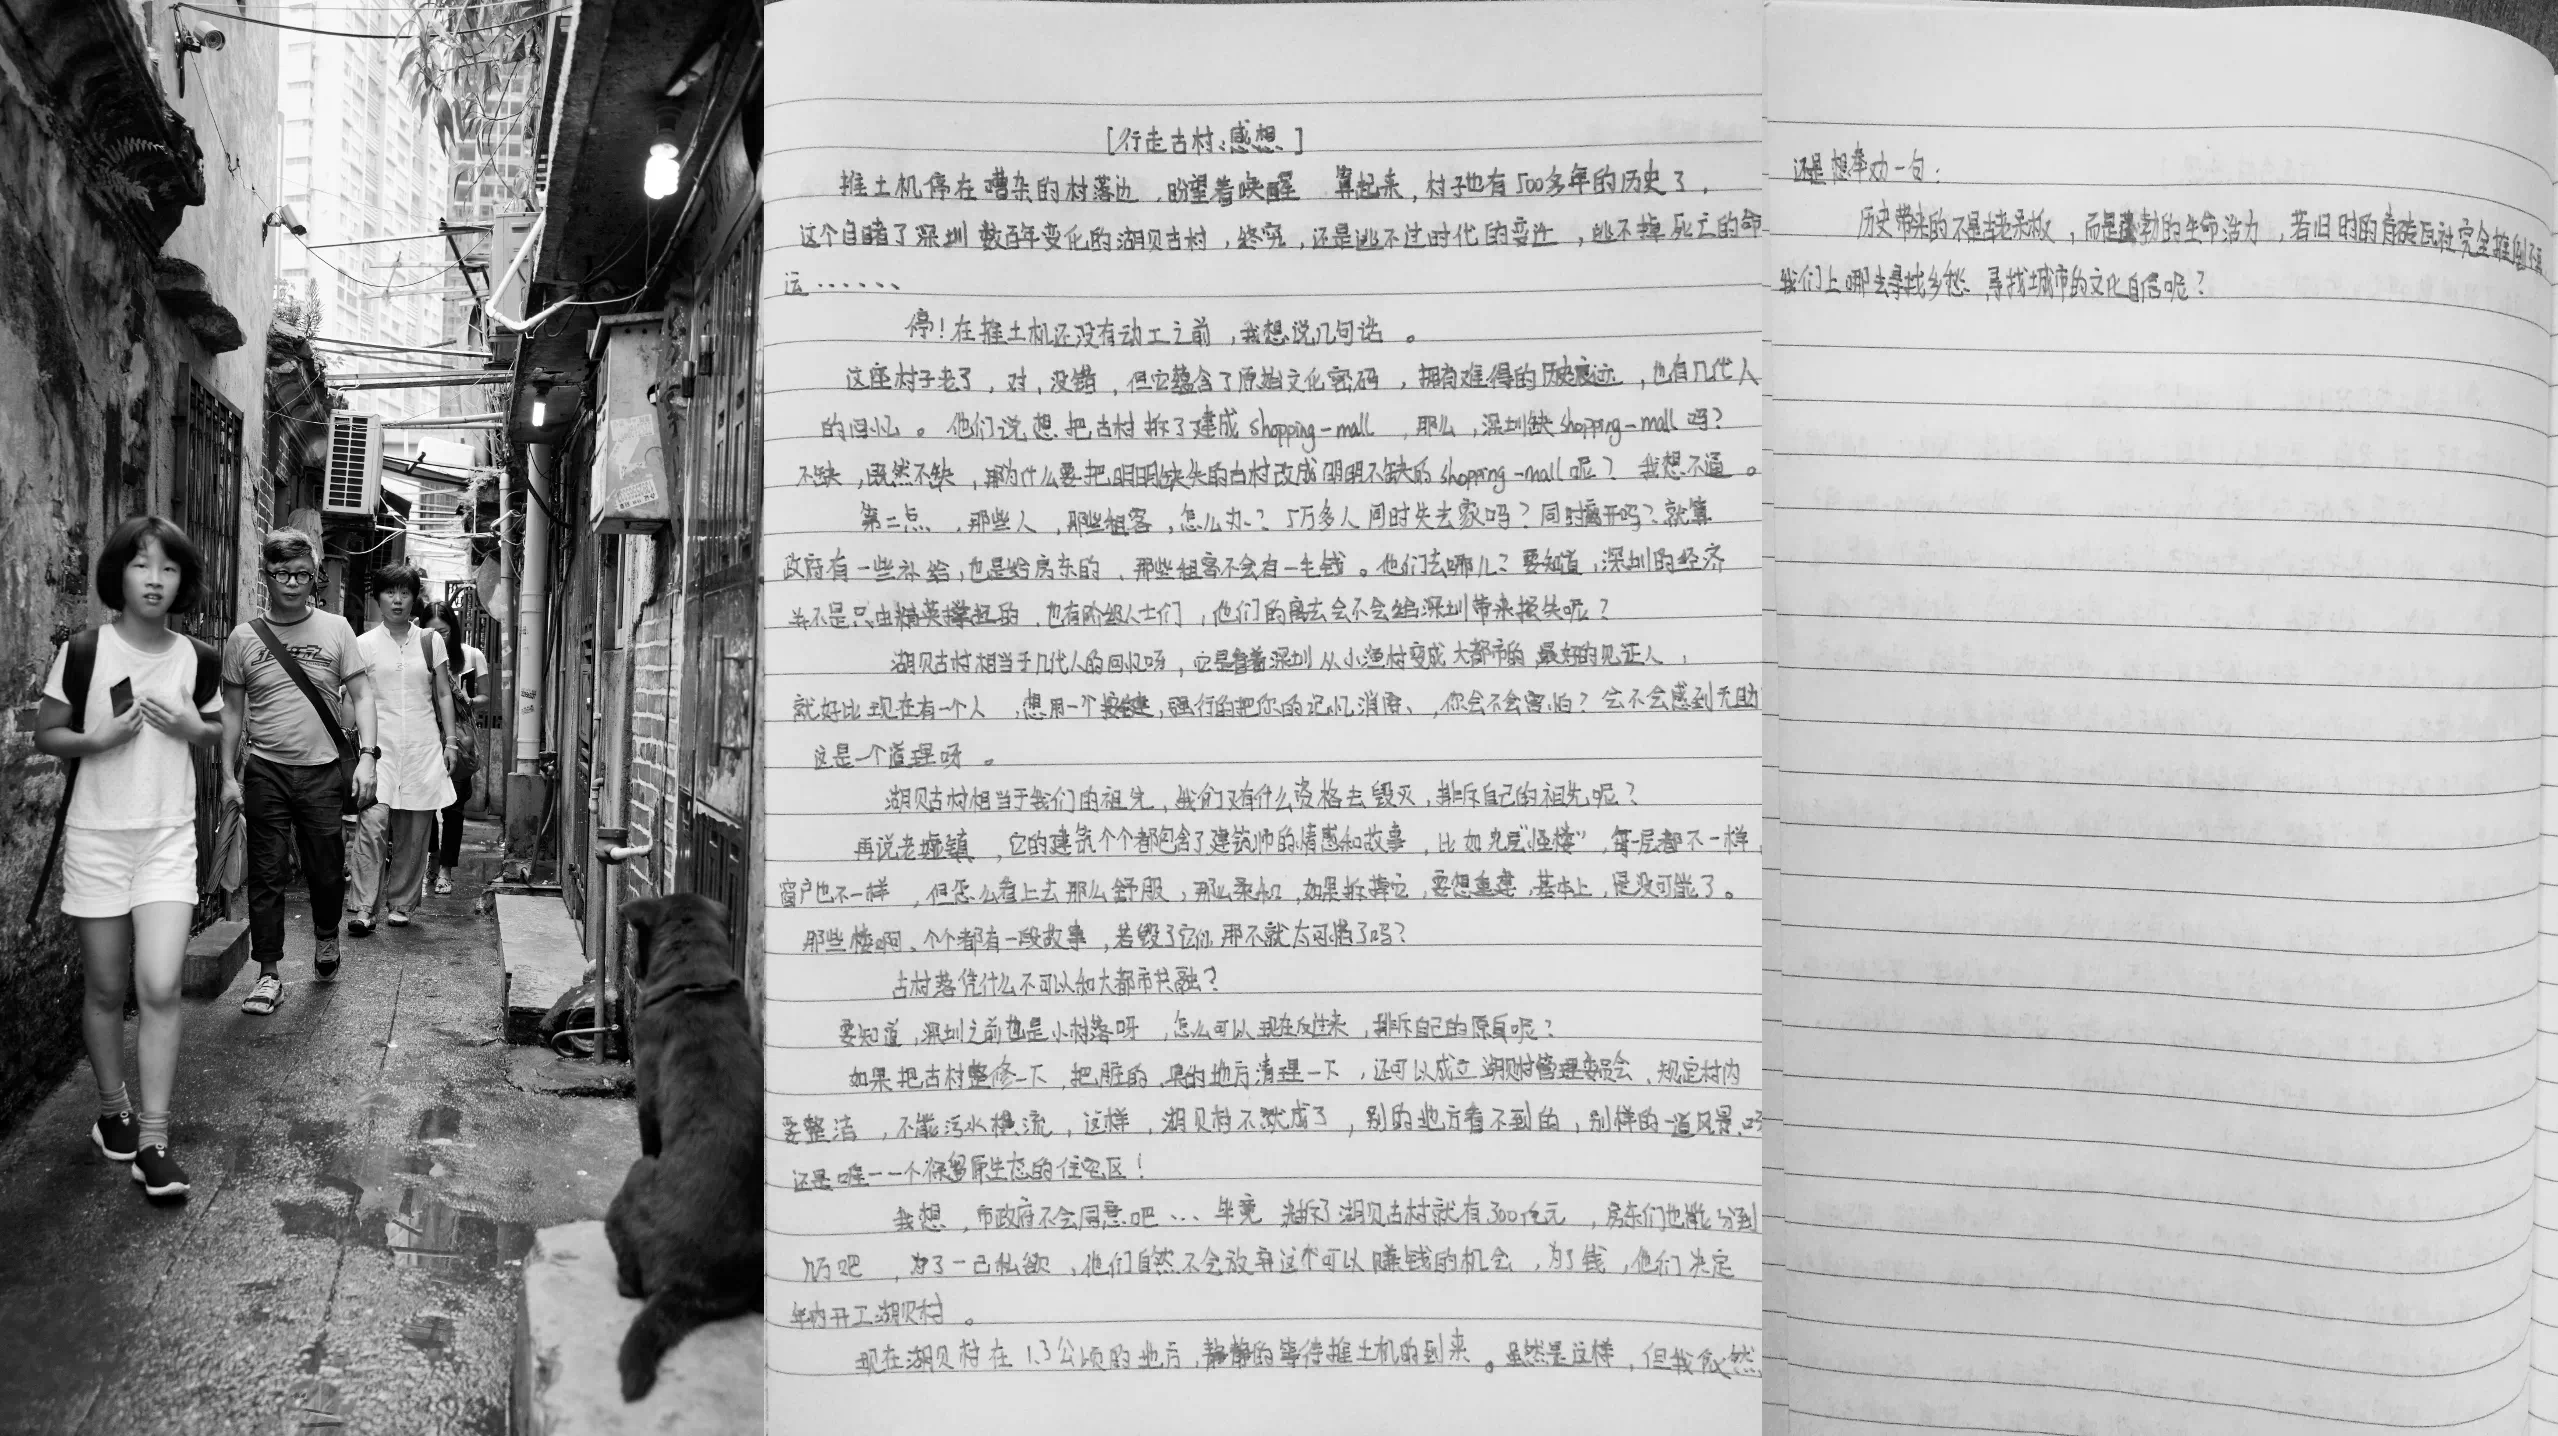 [行走古村、感想]
推土机停在嘈杂的村落边，盼望着唤醒 算起来，村子也有500多年的历史了，
这个目睹了深圳数百年变化的湖贝古村，终究，还是逃不过时代的变迁，逃不掉死亡的命
运......
停！在推土机还没有动工之前，我想说几句话。
这座村子老了，对，没错，但它蕴含了原始文化密码，拥有难得的历史痕迹，也有几代人
的回忆。他们说想把古村拆了建成shopping-mall，那么，深圳缺shopping-mall吗？
不缺，既然不缺，那为什么要把明明缺失的古村改成明明不缺的shopping-mall呢？我想不通。
第二点，那些人，那些租客，怎么办？5万多人同时失去家吗？同时离开吗？就算
政府有一些补给，也是给房东的，那些租客不会有一毛钱。他们去哪儿？要知道，深圳的经济
并不是只由精英撑起的，也有阶级人士们，他们的离去会不会给深圳带来损失呢？
湖贝古村相当于几代人的回忆呀，它是看着深圳从小渔村变成大都市的最好的见证人，
就好比现在有一个人，想用一个按键，强行的把你的记忆消除，你会不会害怕？会不会感到无助
这是一个道理呀。
湖贝古村相当于我们的祖先，我们又有什么资格去毁灭，排斥自己的祖先呢？
再说老墟镇，它的建筑个个都包含了建筑师的情感和故事，比如九层“怪楼”，每一层都不一样，
窗户也不一样，但怎么看上去那么舒服，那么柔和，如果拆掉它，要想重建，基本上，是没可能了。
那些楼啊，个个都有一段故事，若毁了它们那不就太可惜了吗？
古村落凭什么不可以和大都市共融？
要知道，深圳之前也是小村落呀，怎么可以现在反过来，排斥自己的原身呢？
如果把古村整修一下，把脏的、臭的地方清理一下，还可以成立湖贝村管理委员会，规定村内
要整洁，不能污水横流，这样，湖贝村不就成了，别的地方看不到的，别样的一道风景呀
还是唯一一个保留原生态的住宅区！
我想，市政府不会同意吧...毕竟 拆了湖贝古村就有300亿元，房东们也能分到
几万吧，为了一己私欲，他们自然不会放弃这个可以赚钱的机会，为了钱，他们决定
年内开工湖贝村。
现在湖贝村在1.3公顷的地方，静静的等待推土机的到来。虽然是这样，但我依然
还是想奉劝一句：
历史带来的不是老朽，而是蓬勃的生命活力，若旧时的青砖瓦社完全推倒
我们上哪去寻找乡愁、寻找城市的文化自信呢？